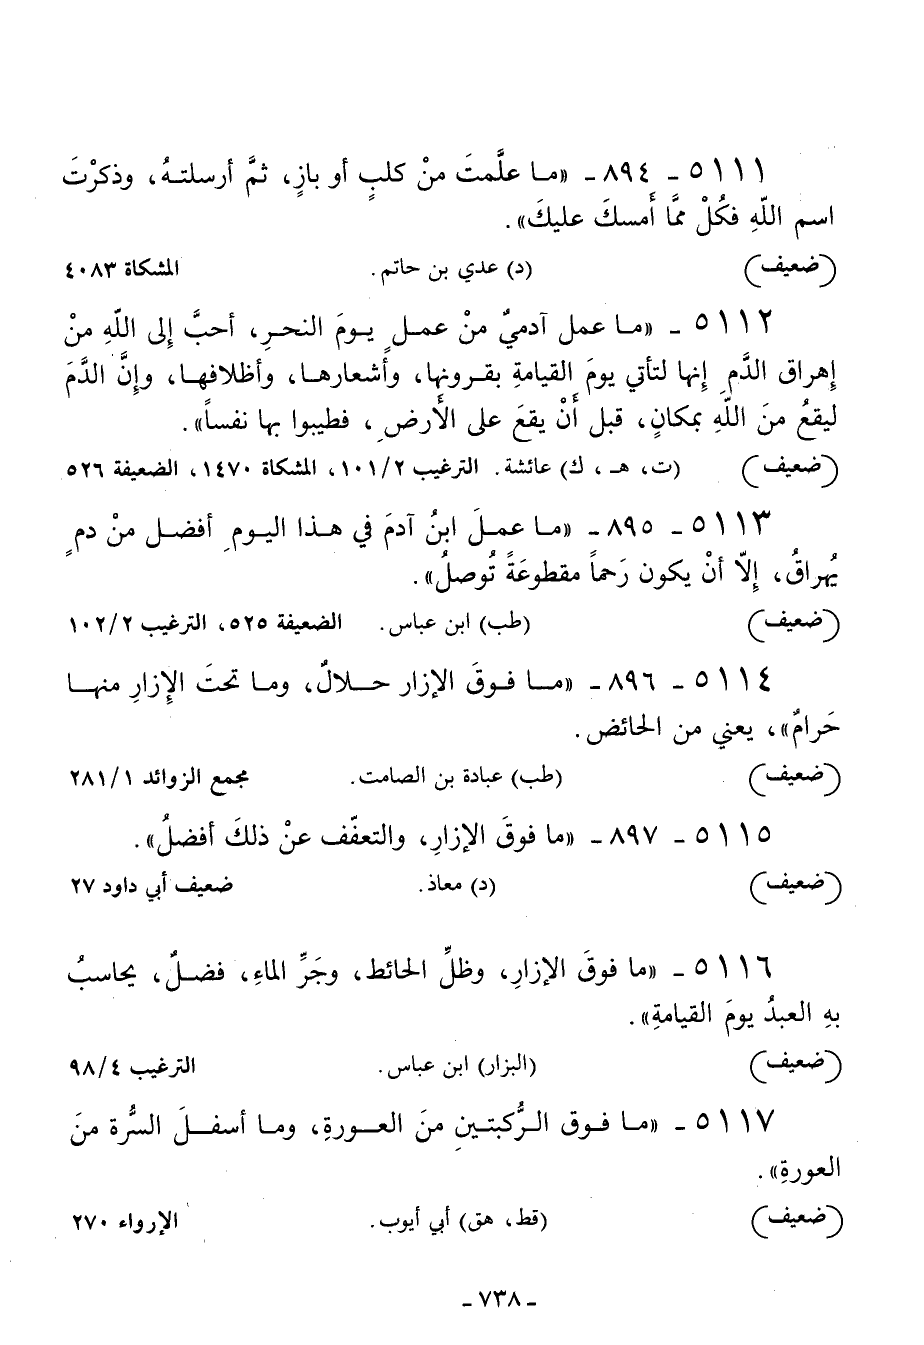 ٥١١١ - ٨٩٤ - «مـا علَّمتَ منْ كلبٍ أو بازٍ، ثمَّ أرسلتـهُ، وذكرْتَ
اسم اللّهِ فكُلْ ممَّا أَمسكَ عليكَ».
(ضعيف) (د) عدي بن حاتم. المشكاة ٤٠٨٣
٥١١٢ - «مـا عمل آدميٌ منْ عمـلٍ يـومَ النحـرِ، أحبَّ إِلى اللّهِ منْ
إهراق الدَّمِ إِنها لتأتي يومَ القيامةِ بقـرونها، وأشعارهـا، وأظلافهـا، وإِنَّ الدَّمَ
ليقعُ منَ اللّهِ بمكانٍ، قبل أَنْ يقعَ على الأَرضِ، فطيبوا بها نفساً».
(ضعيف) (ت، هـ، ك) عائشة. الترغيب ١٠١/٢، المشكاة ١٤٧٠، الضعيفة ٥٢٦
٥١١٣ - ٨٩٥ - «مـا عمـلَ ابنُ آدمَ في هـذا اليـومِ أفضـل منْ دمٍ
يُهراقُ، إِلّا أنْ يكون رَحماً مقطوعَةً تُوصلُ».
(ضعيف) (طب) ابن عباس. الضعيفة ٥٢٥، الترغيب ١٠٢/٢
٥١١٤ - ٨٩٦ - «مـا فـوقَ الإزار حـلالٌ، ومـا تحتَ الإِزارِ منهـا
حَرامٌ»، يعني من الحائض.
(ضعيف) (طب) عبادة بن الصامت. مجمع الزوائد ٢٨١/١
٥١١٥ - ٨٩٧ - «ما فوقَ الإزارِ، والتعفّف عنْ ذلكَ أفضلُ».
(ضعيف) (د) معاذ. ضعيف أبي داود ٢٧
٥١١٦ - «ما فوقَ الإزارِ، وظلِّ الحائط، وجَرِّ الماءِ، فضـلٌ، يحاسبُ
بهِ العبدُ يومَ القيامةِ».
(ضعيف) (البزار) ابن عباس. الترغيب ٩٨/٤
٥١١٧ - «مـا فـوق الـرُّكبتـينِ منَ العـورةِ، ومـا أسفـلَ السُّرة منَ
العورةِ».
(ضعيف) (قط، هق) أبي أيوب. الإرواء ٢٧٠
- ٧٣٨ -